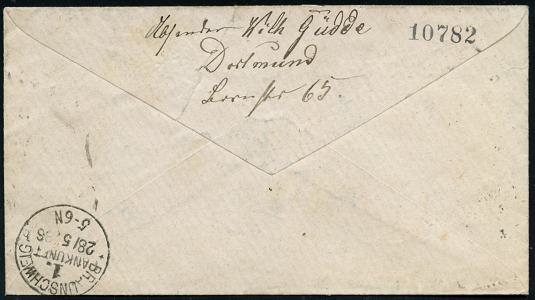 Absender Wilh Güdde
Dortmund
65.
10782
BRAUNSCHWEIG
1.
ANKUNFT
28/5 86
5-6N